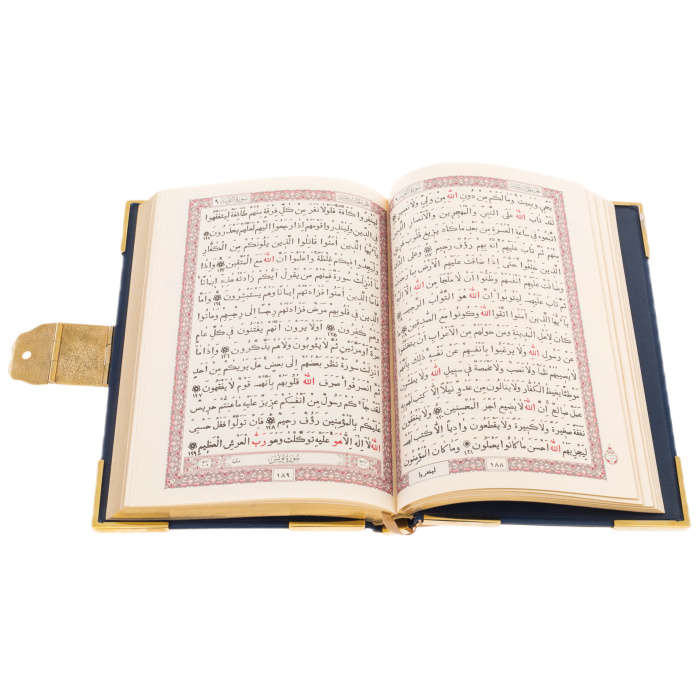 يحيي ويميت ومالكم من دون الله من ولي ولا نصير
لقد تاب الله على النبي والمهجرين والأنصار الذين
اتبعوه في ساعة العسرة من بعد ما كاد يزيغ قلوب
منهم ثم تاب عليهم إنه بهم رؤف رحيم ١١٧ وعلى
الذين خلفوا حتى إذا ضاقت عليهم الأرض بما
وضاقت عليهم أنفسهم وظنوا أن لا ملجأ من الله إلا
ثم تاب عليهم ليتوبوا إن الله هو التواب الرحيم
يا أيها الذين آمنوا اتقوا الله وكونوا مع الصدقين
كان لأهل المدينة ومن حولهم من الأعراب أن
عن رسول الله ولا يرغبوا بأنفسهم عن نفسه ذلك
لا يصيبهم ظمأ ولا نصب ولا مخمصة في سبيل الله ولا
موطئا يغيظ الكفار ولا ينالون من عدو نيلا إلا كتب
عمل صالح إن الله لا يضيع أجر المحسنين ولا ينفقون
نفقة صغيرة ولا كبيرة ولا يقطعون واديا إلا كتب لهم
ليجزيهم الله أحسن ما كانوا يعملون ١٢١ وما كان المؤمنون
لينفروا
١٨٨
سورة التوبة ٩
لينفروا كافة فلولا نفر من كل فرقة منهم طائفة ليتفقهوا
في الدين ولينذروا قومهم إذا رجعوا إليهم لعلهم يحذرون ١٢٢
يا أيها الذين آمنوا قاتلوا الذين يلونكم من الكفار
وليجدوا فيكم غلظة واعلموا أن الله مع المتقين ١٢٣ وإذا
ما أنزلت سورة فمنهم من يقول أيكم زادته هذه إيمانا
فأما الذين آمنوا فزادتهم إيمانا وهم يستبشرون ١٢٤ وأما
الذين في قلوبهم مرض فزادتهم رجسا إلى رجسهم وماتوا
وهم كافرون ١٢٥ أولا يرون أنهم يفتنون في كل عام
مرة أو مرتين ثم لا يتوبون ولا هم يذكرون ١٢٦ وإذا ما
أنزلت سورة نظر بعضهم إلى بعض هل يريكم من أحد
ثم انصرفوا صرف الله قلوبهم بأنهم قوم لا يفقهون ١٢٧
لقد جاءكم رسول من أنفسكم عزيز عليه ما عنتم حريص
عليكم بالمؤمنين رؤف رحيم ١٢٨ فإن تولوا فقل حسبي
الله لا إله إلا هو عليه توكلت وهو رب العرش العظيم ١٢٩
سورة يونس
١٨٩